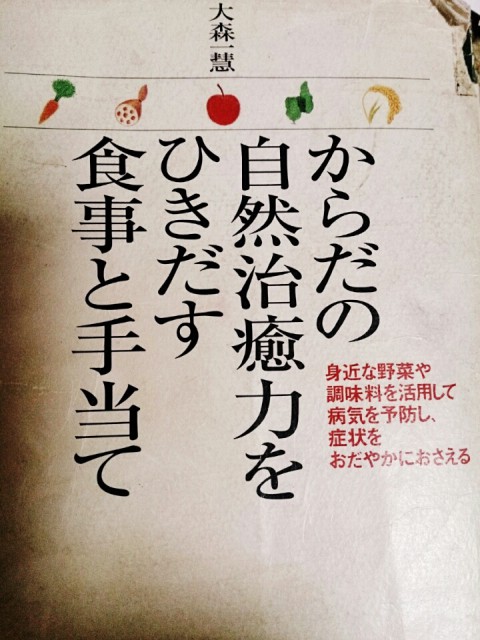 大森一慧
からだの
自然治癒力を
ひきだす
食事と手当て
身近な野菜や
調味料を活用して
病気を予防し、
症状を
おだやかにおさえる